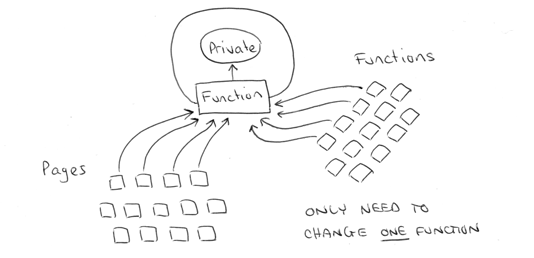 Private
Function
Functions
Pages
ONLY NEED TO
CHANGE ONE FUNCTION